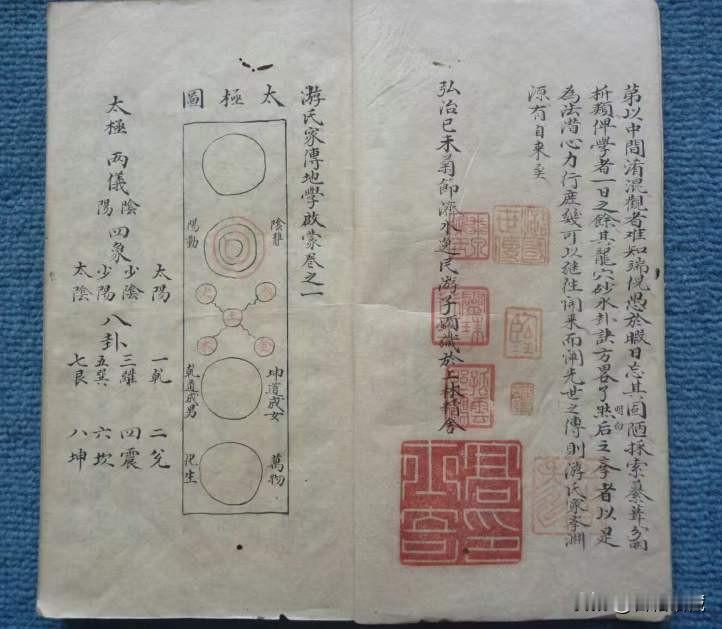 第以中間淆混觀者难知端倪愚於暇日忘其固陋採索纂葺分門
析類俾學者一日之餘其龍穴砂水卦訣方畧了然后之学者以是
明白
為法潜心力行庶幾可以継往開来而溯先世之傳則游氏家学淵
源有自来矣
弘治己未菊節濟水逸民游子識於上林精舍
游氏家傳地學啟蒙卷之一
太極圖
陰靜
陽動
火
水
土
木
金
坤道成女
乾道成男
萬物
化生
太極
兩儀
陰
陽
四象
太陽
少陰
少陽
太陰
八卦
一乾
二兌
三離
四震
五巽
六坎
七艮
八坤